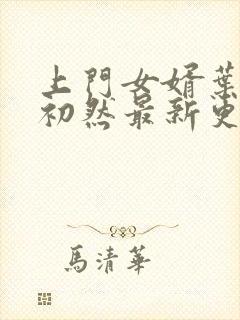 上門女婿葉
初然最新更
馬清華